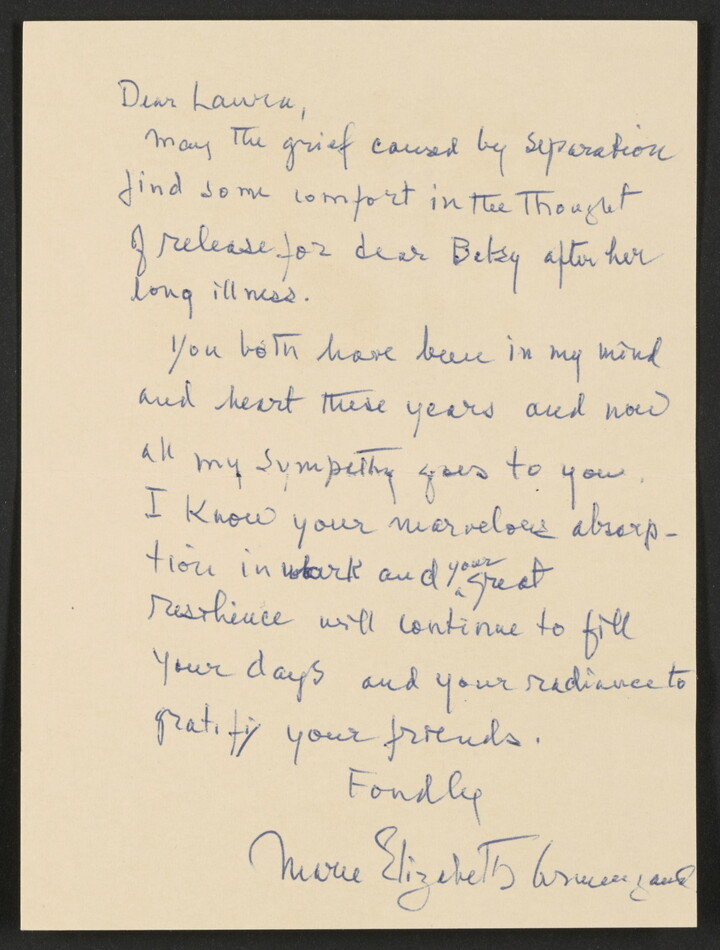 Dear Laura,
may the grief caused by separation
find some comfort in the thought
of release for dear Betsy after her
long illness.
You both have been in my mind
and heart these years and now
all my sympathy goes to you.
I know your marvelous absorp-
tion in work and your great
resilience will continue to fill
your days and your radiance to
gratify your friends.
Fondly
Marie Elizabeth